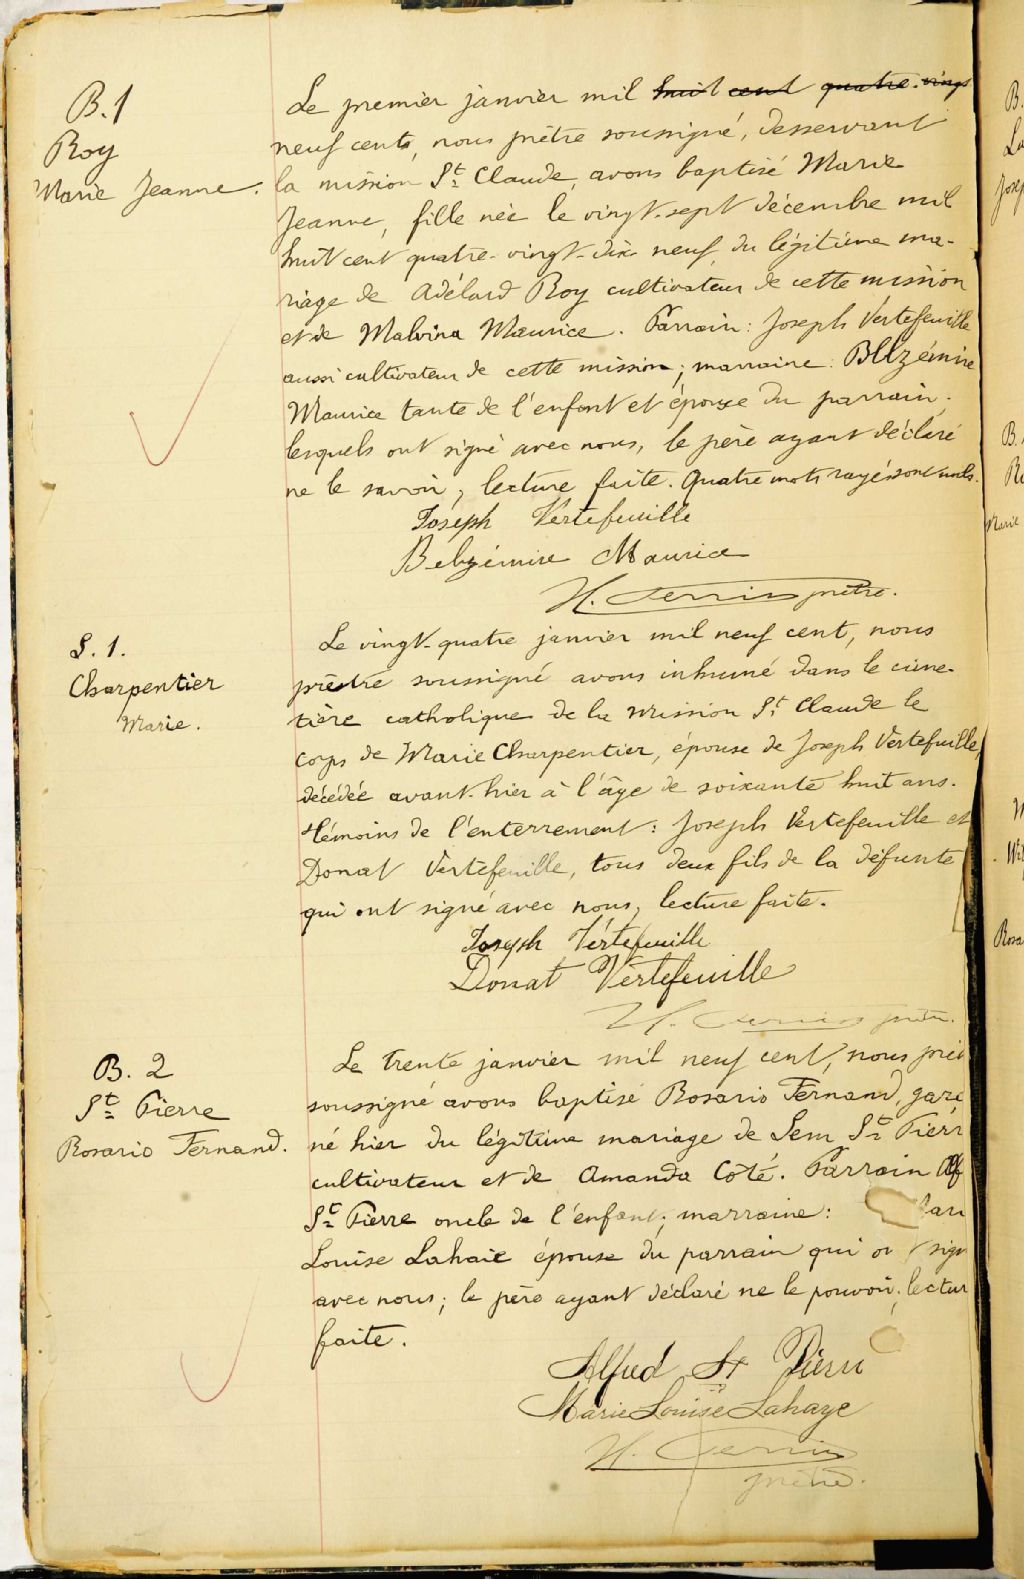 B.1
Roy
Marie Jeanne.
Le premier janvier mil huit cent quatre-vingt
neuf cents, nous prêtre soussigné, desservant
la mission St Claude, avons baptisé Marie
Jeanne, fille née le vingt-sept décembre mil
huit cent quatre-vingt-dix neuf du légitime ma-
riage de Adélard Roy cultivateur de cette mission
et de Malvina Maurice. Parrain: Joseph Vertefeuille
aussi cultivateur de cette mission; marraine: Belzémire
Maurice tante de l'enfant et épouse du parrain,
lesquels ont signé avec nous, le père ayant déclaré
ne le savoir, lecture faite. Quatre mots rayés sont nuls.
Joseph Vertefeuille
Belzémire Maurice
H. Perrin prêtre.
S. 1.
Charpentier
Marie.
Le vingt-quatre janvier mil neuf cent, nous
prêtre soussigné avons inhumé dans le cime-
tière catholique de la mission St Claude le
corps de Marie Charpentier, épouse de Joseph Vertefeuille,
décédée avant-hier à l'âge de soixante huit ans.
Témoins de l'enterrement: Joseph Vertefeuille et
Donat Vertefeuille, tous deux fils de la défunte
qui ont signé avec nous, lecture faite.
Joseph Vertefeuille
Donat Vertefeuille
H. Perrin prêtre.
B. 2
St Pierre
Rosario Fernand.
Le trente janvier mil neuf cent, nous prêt
soussigné avons baptisé Rosario Fernand, garç
né hier du légitime mariage de Sem St Pierr
cultivateur et de Amanda Côté. Parrain Alf
St Pierre oncle de l'enfant; marraine: Mari
Louise Lahaie épouse du parrain qui ont sign
avec nous; le père ayant déclaré ne le pouvoir, lectur
faite.
Alfred St Pierre
Marie Louise Lahaye
H. Perrin
prêtre.